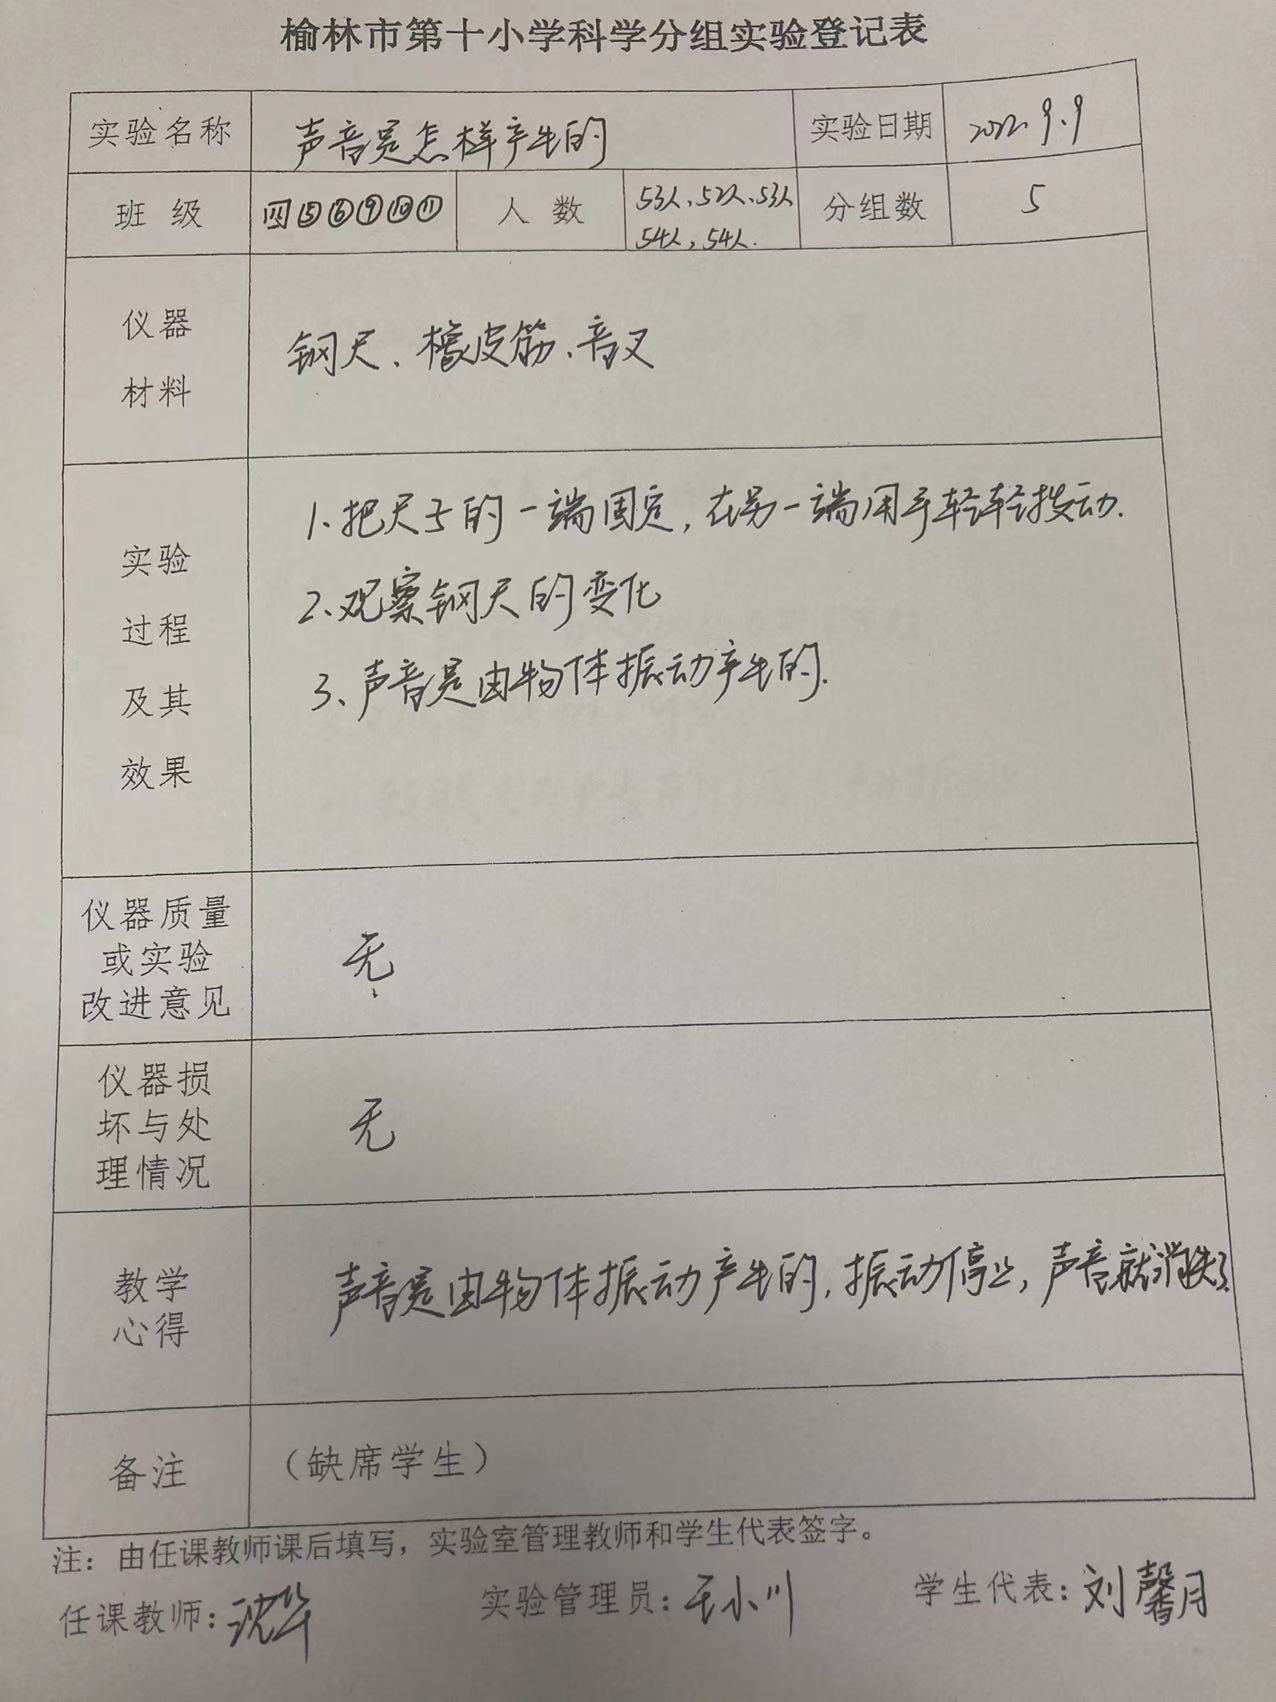 榆林市第十小学科学分组实验登记表
实验名称 声音是怎样产生的 实验日期 2022.9.9
班级 四⑤⑥⑨⑩⑪ 人数 53人、52人、53人 54人, 54人. 分组数 5
仪器
材料
钢尺、橡皮筋、音叉
实验
过程
及其
效果
1、把尺子的一端固定, 在另一端用手轻轻拨动.
2、观察钢尺的变化
3、声音是由物体振动产生的.
仪器质量
或实验
改进意见
无
仪器损
坏与处
理情况
无
教学
心得
声音是由物体振动产生的, 振动停止, 声音就消失了.
备注 (缺席学生)
注: 由任课教师课后填写, 实验室管理教师和学生代表签字。
任课教师: 沈华 实验管理员: 王小川 学生代表: 刘馨月